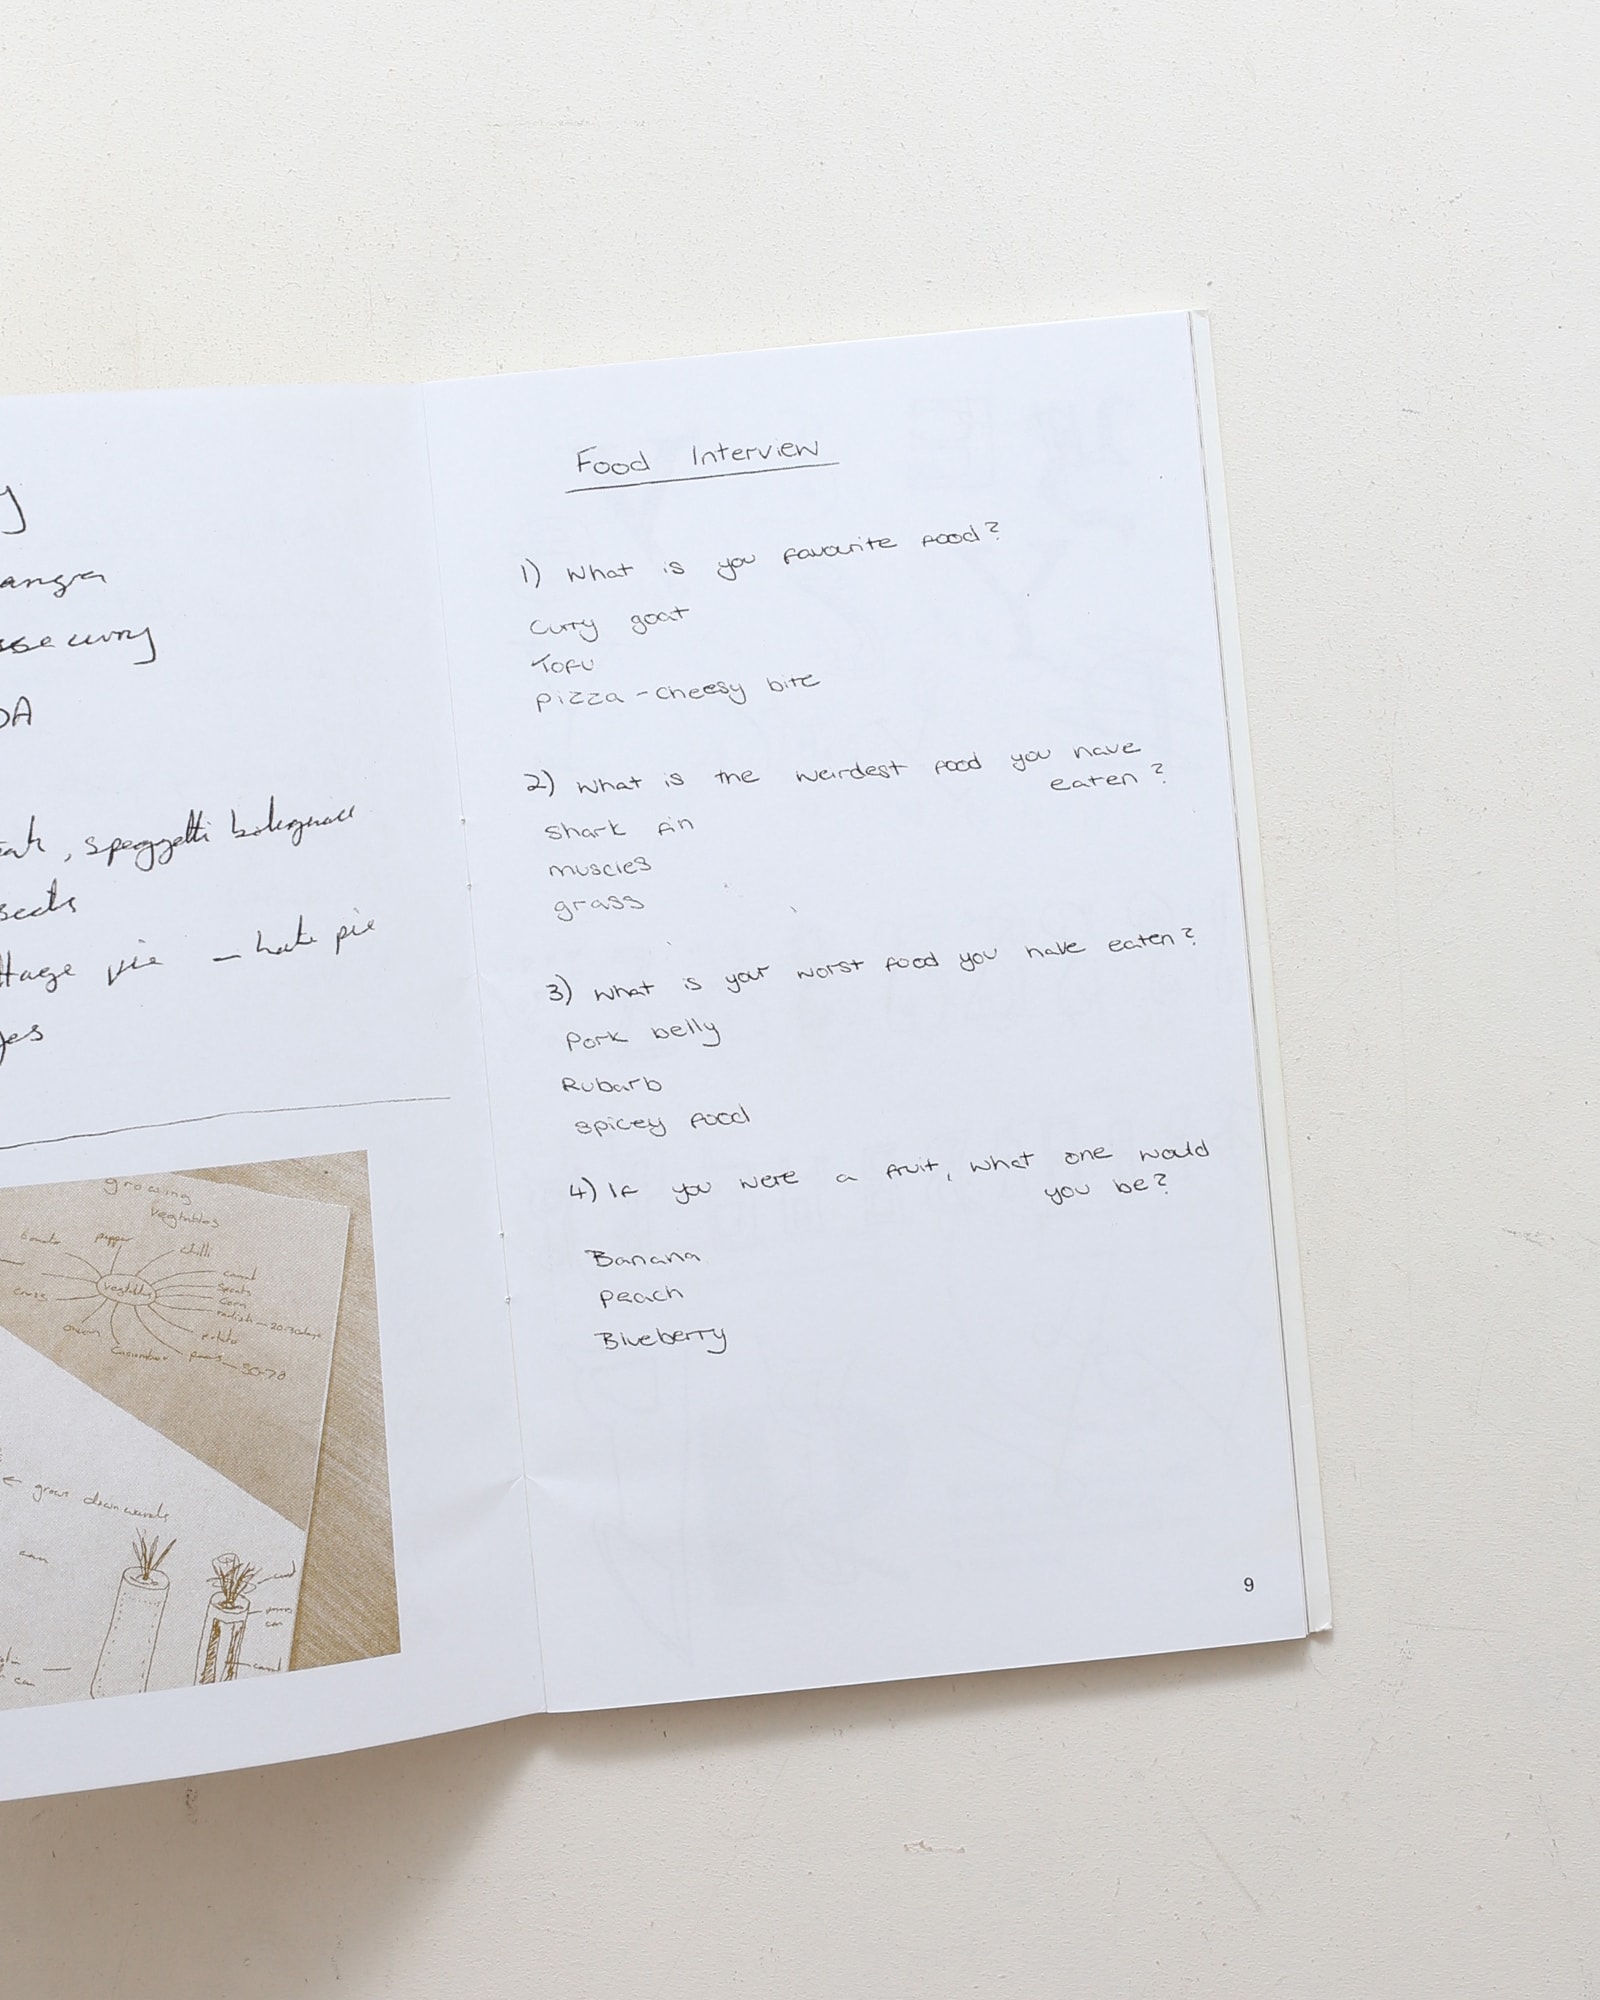 sse curry
, speggetti bolegnaise
ttage pie – hate pie
growing
vegtables
tomato
pepper
chilli
vegtables
corn
radish – 20-30 days
potato
onion
Cucumber
peas – 50-70
← grows downwards
can
can
Food Interview
1) What is you favourite food?
Curry goat
Tofu
pizza - cheesy bite
2) What is the weirdest food you have
eaten?
Shark fin
muscles
grass
3) What is your worst food you have eaten?
Pork belly
Rubarb
spicey food
4) If you were a fruit, what one would
you be?
Banana
peach
Blueberry
9